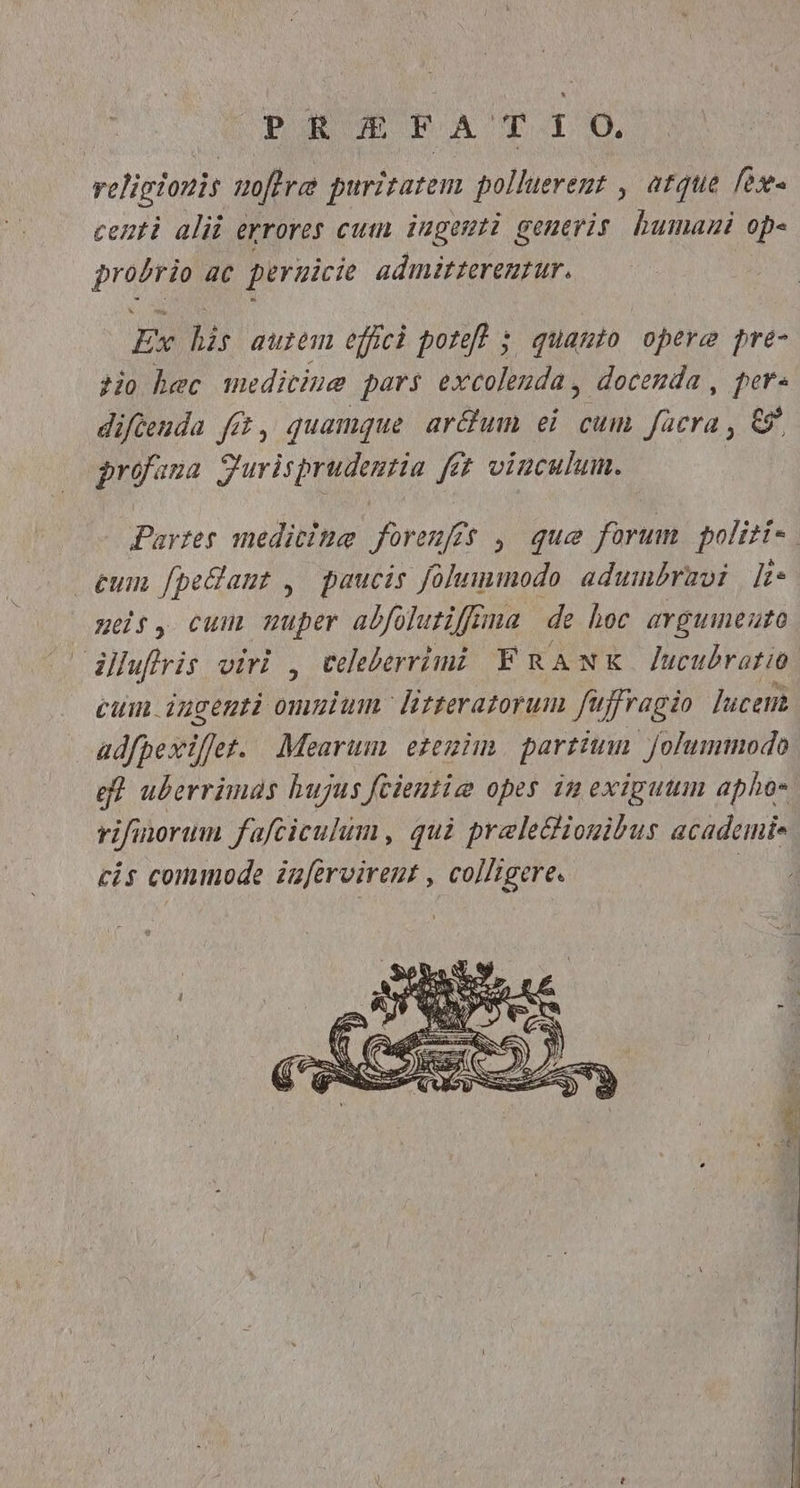 PRÆFATIO.
religionis noſtræ puritatem polluerent , atque ſex-
centi alii errores cum ingenti generis humani op-
probrio ac pernicie admitterentur.
Ex his autem effici poteſt ; quanto operæ pre-
tio hæc medicinæ pars excolenda , docenda , per-
diſcenda ſit , quamque arctum ei cum ſacra , &
profana Jurisprudentia ſit vinculum.
Partes medicinæ forenſis , quæ forum politi-
cum ſpectant , paucis ſolummodo adumbravi li-
neis , cum nuper abſolutiſſima de hoc argumento
illuſtris viri , celeberrimi FRANK lucubratio
cum ingenti omnium litteratorum ſuffragio lucem
adſpexiſſet. Mearum etenim partium ſolummodo
eſt uberrimas hujus ſcientiæ opes in exiguum apho-
riſmorum faſciculum , qui prælectionibus academi-
cis commode inſervirent , colligere.